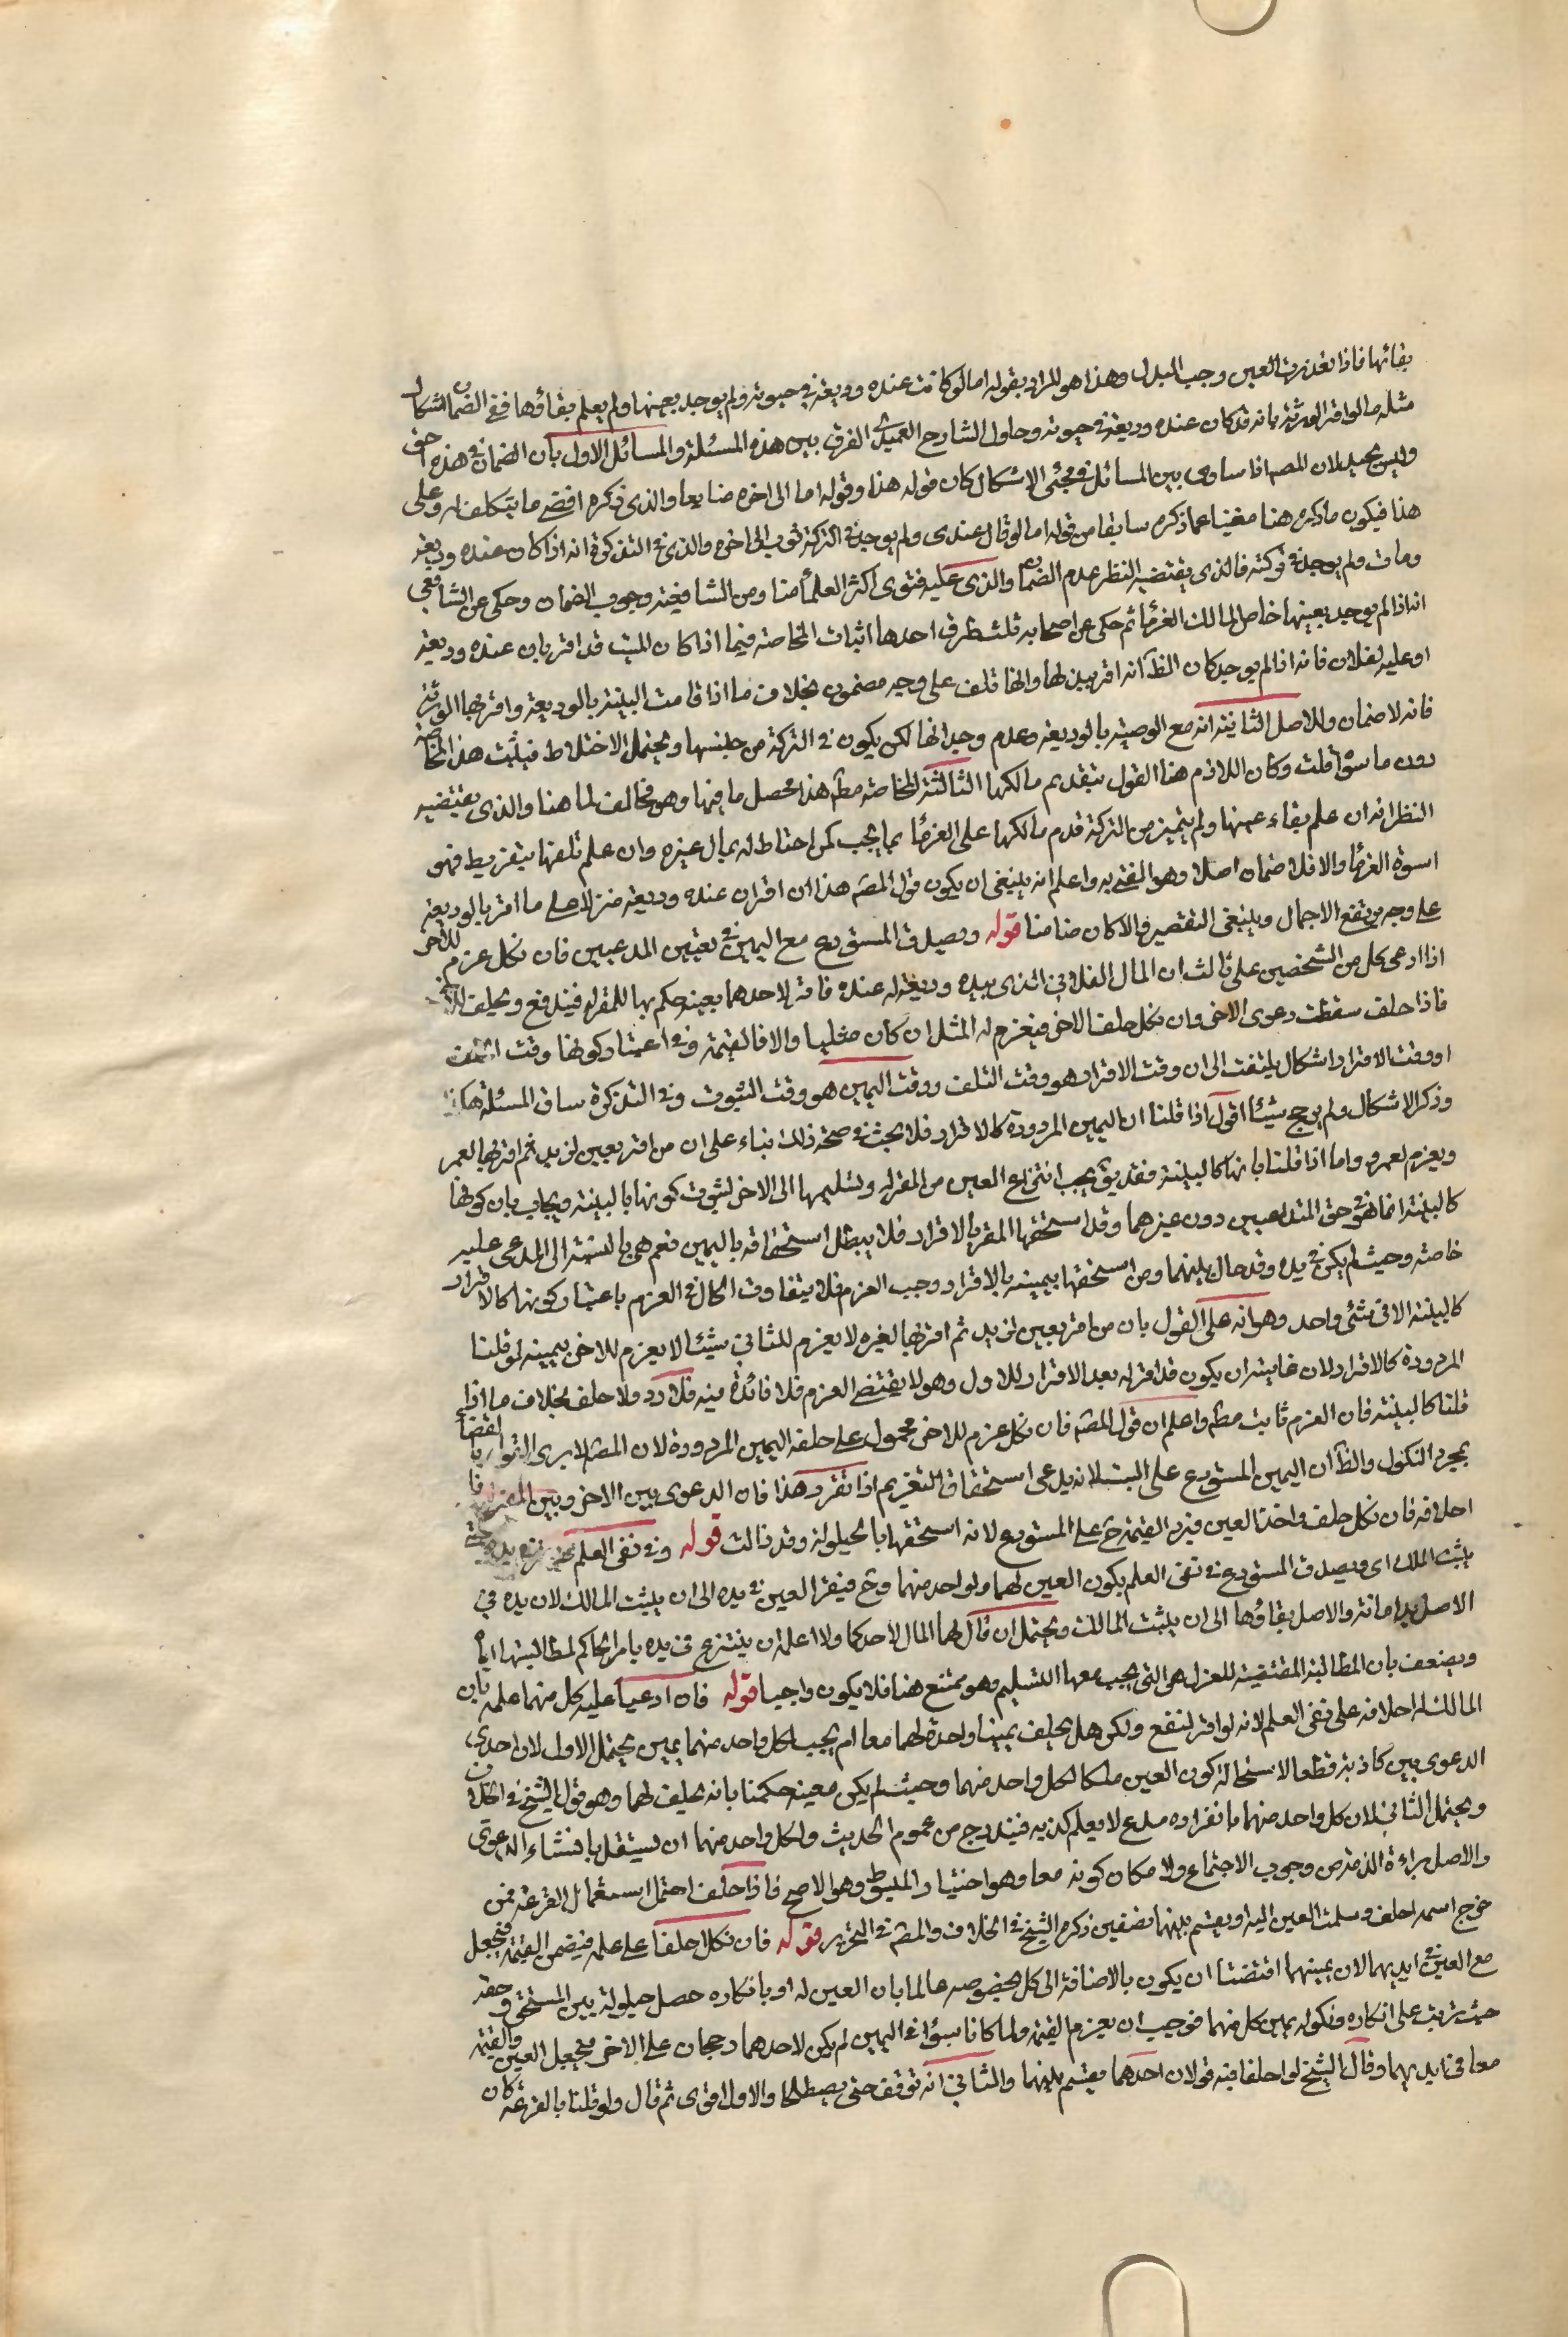 بقائها فاذا تعذرت العين وجب البدل وهذا هو المراد بقوله اما لو كانت عنده وديعة في حيوته ولم يوجد بعينها ولم يعلم بقاؤها ففي الضمان اشكال
مثله ما لو اقر الورثة بانه قد كان عنده وديعة في حيوته وحاول الشارح العميدي الفرق بين هذه المسئلة والمسائل الاول بان الضمان في هذه احق
وليس بجيد لان المصـ اذا ساوى بين المسائل في مجئ الاشكال كان قوله هذا وقوله اما الى اخره ضايعا والذي ذكره اقصى ما يتكلف له وعلى
هذا فيكون ما ذكره هنا مغنيا عما ذكره سابقا من قوله اما لو قال عندي ولم يوجد في التركة ثوب الى اخره والذي في التذكرة انه اذا كان عنده وديعة
ومات ولم يوجد في تركته فالذي يقتضيه النظر عدم الضمان والذي عليه فتوى اكثر العلماء منا ومن الشافعية وجوب الضمان وحكى عن الشافعي
انه اذا لم يوجد بعينها خاص المالك الغرماء ثم حكى عن اصحابه ثلث طرق احدها اثبات المخاصة فيما اذا كان الميت قد اقر بان عنده وديعة
او عليه لفلان فانه اذا لم يوجد كان الظ انه اقر ببذلها وانها تلف على وجه مضمون بخلاف ما اذا قامت البينة بالوديعة واقر بها الورثة
فانه لا ضمان وللاصل الثانية انه مع الوصية بالوديعة وعدم وجدانها لكن يكون في التركة من جنسها ويحتمل الاختلاط فيثبت هذا المخاصة
دون ما سواه قلت وكان اللازم هنا القول بتقديم مالكها الثالثة المخاصة مطـ هذا محصل ما فيها وهو مخالف لما هنا والذي يقتضيه
النظر انه ان علم بقاء عينها ولم يتميز من التركة قدم مالكها على الغرماء بما يجب كمن اختلط له بمال غيره وان علم تلفها بتفريط فهو
اسوة الغرماء والا فلا ضمان اصلا وهو المفتى به واعلم انه ينبغي ان يكون قول المصـ هذا ان اقر ان عنده وديعة منزلا على ما اقر بالوديعة
على وجه يرتفع الاجمال وينبغي التقصير والا كان ضامنا قوله ويصدق المستودع مع اليمين في تعيين المدعيين فان نكل غرم للاخر
اذا ادعى كل من الشخصين على ثالث ان المال الفلاني الذي بيده وديعة له عنده فاقر لاحدهما بعينه حكم بها للمقر له فيدفع ويحلف للاخر
فاذا حلف سقطت دعوى الاخر وان نكل حلف الاخر فيغرم له المثل ان كان مثليا والا فالقيمة وفي اعتبار كونها وقت التلف
او وقت الاقرار اشكال يلتفت الى ان وقت الاقرار هو وقت التلف ووقت اليمين هو وقت الثبوت وفي التذكرة ساق المسئلة هكذا
وذكر الاشكال ولم يرجح شيئا اقول اذا قلنا ان اليمين المردودة كالاقرار فلا بحث في صحة ذلك بناء على ان من اقر بعين لزيد ثم اقر بها لعمر
ويغرم لعمرو واما اذا قلنا بانها كالبينة فقد يق يجب انتزاع العين من المقر له وتسليمها الى الاخر لثبوت كونها بالبينة ويجاب بان كونها
كالبينة انما هو في حق المتداعيين دون غيرهما وقد استحقها المقر بالاقرار فلا يبطل استحقاقه باليمين نعم هي بالنسبة الى المدعى عليه
خاصة وحيث لم يكن في يده وقد حال بينهما ومن استحقها بيمينه بالاقرار وجب الغرم فلا يتفاوت الحال في الغرم باعتبار كونها كالاقرار
كالبينة الا في شئ واحد وهو انه على القول بان من اقر بعين لزيد ثم اقر بها لغيره لا يغرم للثاني شيئا لا يغرم للاخر بيمينه لو قلنا
المردودة كالاقرار لان غايته ان يكون قد اقر له بعد الاقرار للاول وهو لا يقتضي الغرم فلا فائدة فيه فلا رد ولا حلف بخلاف ما اذا
قلنا كالبينة فان الغرم ثابت مطـ واعلم ان قول المصـ فان نكل غرم للاخر محمول على حلفه اليمين المردودة لان المصـ لا يرى القضاء
بمجرد النكول والظ ان اليمين المستودع على البت لانه يدعي استحقاق التغريم اذا تقرر هذا فان الدعوى بين الاخر وبين المقر له
احلافه فان نكل حلف واخذ العين فيرد القيمة ح على المستودع لانه استحقها بالحيلولة وقد زالت قوله وفي نفي العلم
يثبت الملك اي ويصدق المستودع في نفي العلم بكون العين لهما ولواحد منهما وح فيقر العين في يده الى ان يثبت المالك لان يده في
الاصل يد امانة والاصل بقاؤها الى ان يثبت المالك ويحتمل ان قال لهما المال لاحدكما ولا اعلم ان ينتزع من يده بامر الحاكم لمطالبتهما اياه
ويضعف بان المطالبة المقتضية للعزل هي التي يجب معها التسليم وهو ممتنع هنا فلا يكون واجبا قوله فان ادعيا عليه كل منهما علمه بان
المالك له احلافه على نفي العلم لانه لو اقر لنفع ولكن هل يحلف يمينا واحدة لهما معا ام يجب لكل واحد منهما يمين يحتمل الاول لان احدى
الدعويين كاذبة قطعا لاستحالة كون العين ملكا لكل واحد منهما وحيث لم يكن معينه حكمنا بانه يحلف لهما وهو قول الشيخ في الخلاف
ويحتمل الثاني لان كل واحد منهما بانفراده مدع لا يعلم كذبه فيندرج من عموم الحديث ولكل واحد منهما ان يستقل بانشاء الدعوى
والاصل براءة الذمة من وجوب الاجتماع ولا مكان كونه معا وهو اختيار المبسوط وهو الاصح فاذا حلف احتمل استعمال القرعة فمن
خرج اسمه احلف وسلمت العين اليه او يقسم بينهما نصفين ذكره الشيخ في الخلاف والمصـ في التحرير قوله فان نكل احلفا على علمه فيضمن القيمة فيجعل
مع العين في ايديهما لان يمينهما اقتضتا ان يكون بالاضافة الى كل بخصوصه عالما بان العين له او بانكاره حصل حيلولة بين المستحق وحقه
حيث ترتب على انكاره ونكوله يمين كل منهما فوجب ان يغرم القيمة ولما كانا سواء في اليمين لم يكن لاحدهما رجحان على الاخر فيجعل العين والقيمة
معا في ايديهما وقال الشيخ لو احلفا فيه قولان احدهما يقسم بينهما والثاني انه توقف حتى يصطلحا والاول اقوى ثم قال ولو قلنا بالقرعة كان